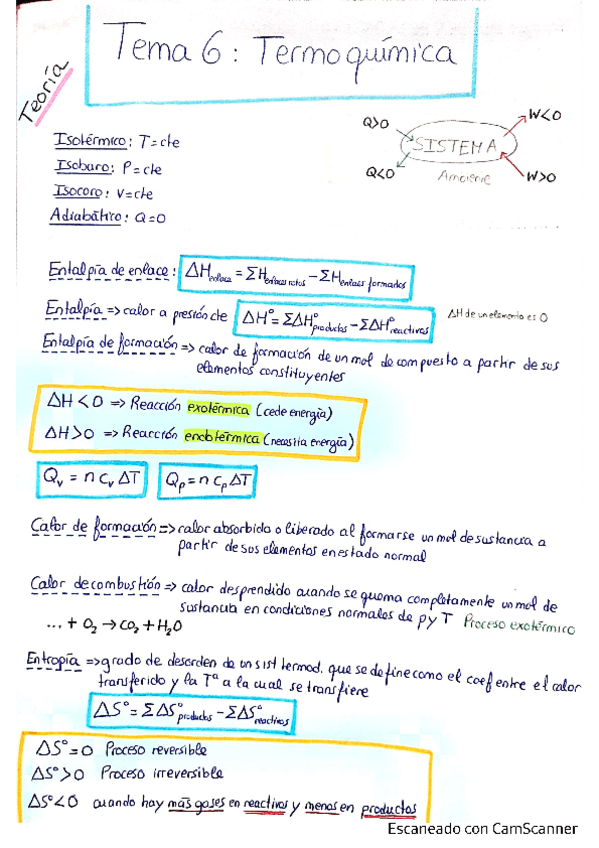 Tema 6: Termoquímica
Teoría
Isotérmico: T=cte
Isobaro: P=cte
Isocoro: V=cte
Adiabático: Q=0
Q>0
W<0
SISTEMA
Q<0
Ambiente
W>0
Entalpía de enlace: ΔHenlace = ΣHenlaces rotos - ΣHenlaces formados
Entalpía => calor a presión cte ΔH° = ΣΔH°productos - ΣΔH°reactivos ΔH de un elemento es 0
Entalpía de formación => calor de formación de un mol de compuesto a partir de sus
elementos constituyentes
ΔH<0 => Reacción exotérmica (cede energía)
ΔH>0 => Reacción endotérmica (necesita energía)
Qv = n cv ΔT Qp = n cp ΔT
Calor de formación => calor absorbido o liberado al formarse un mol de sustancia a
partir de sus elementos en estado normal
Calor de combustión => calor desprendido cuando se quema completamente un mol de
sustancia en condiciones normales de p y T Proceso exotérmico
... + O₂ → CO₂ + H₂O
Entropía => grado de desorden de un sist termod. que se define como el coef entre el calor
transferido y la Tª a la cual se transfiere
ΔS° = ΣΔS°productos - ΣΔS°reactivos
ΔS°=0 Proceso reversible
ΔS°>0 Proceso irreversible
ΔS°<0 cuando hay más gases en reactivos y menos en productos
Escaneado con CamScanner